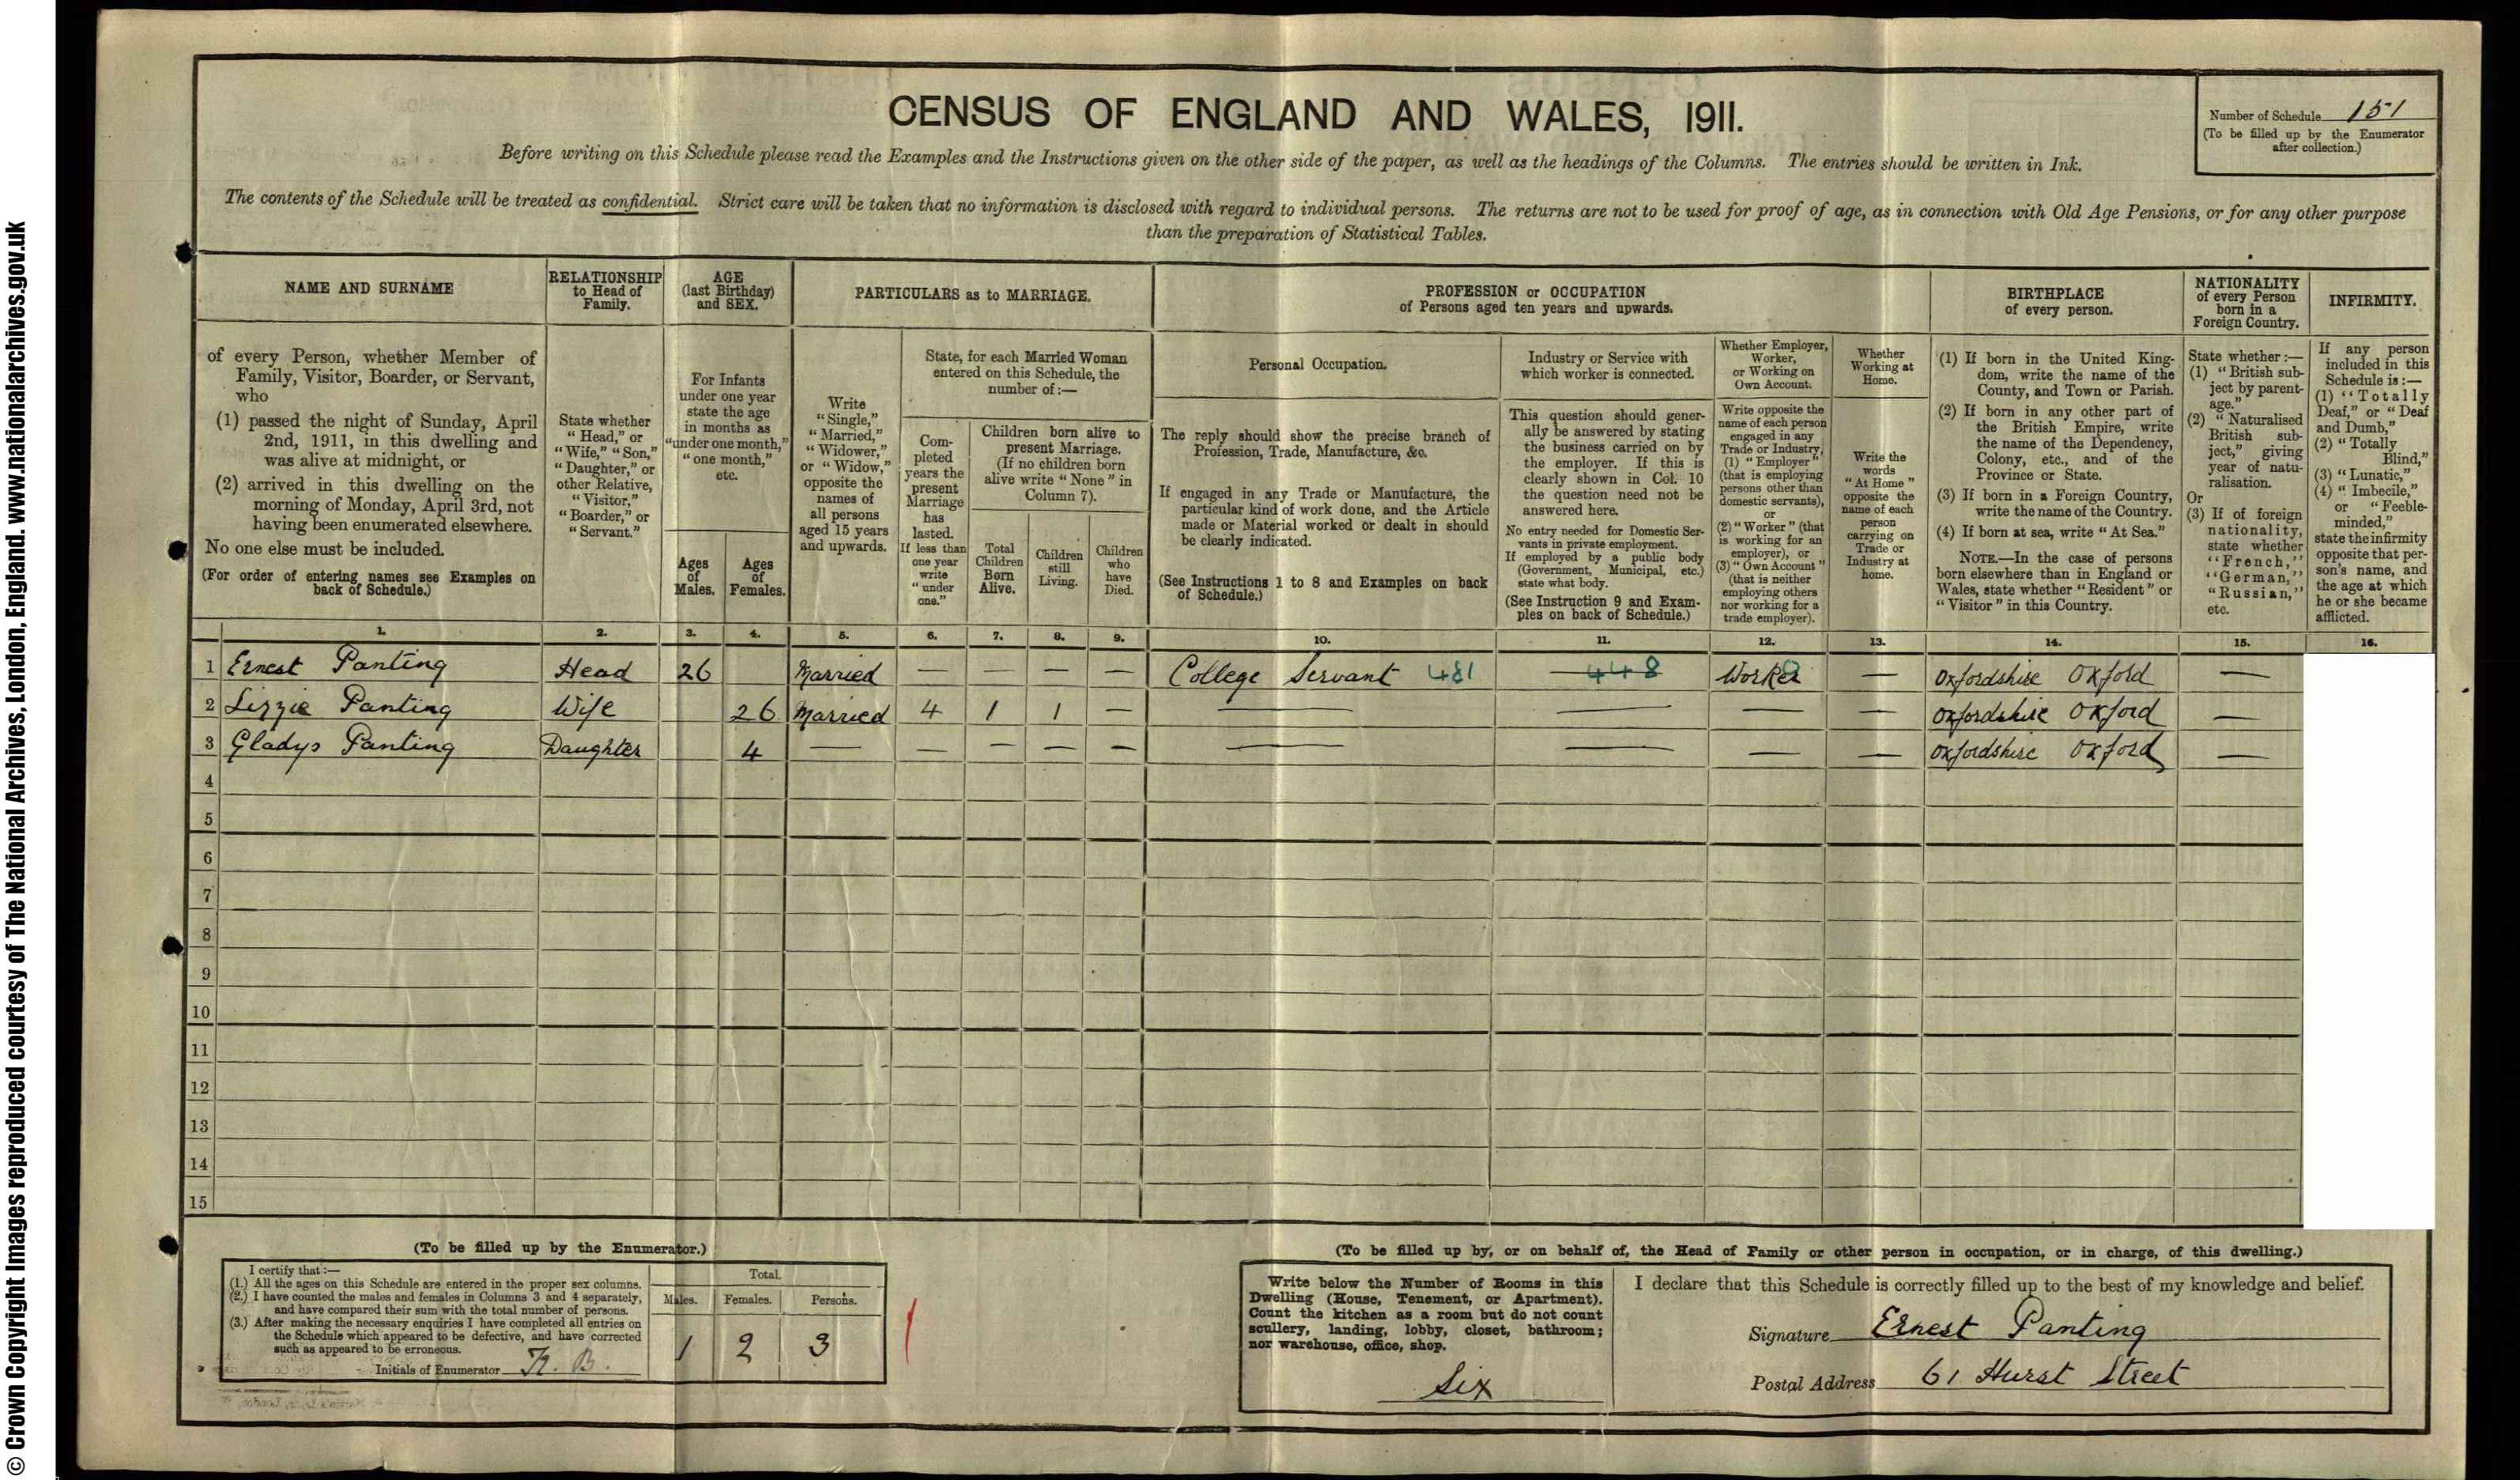 CENSUS OF ENGLAND AND WALES, 1911.
Number of Schedule 151
(To be filled up by the Enumerator
after collection.)
Before writing on this Schedule please read the Examples and the Instructions given on the other side of the paper, as well as the headings of the Columns. The entries should be written in Ink.
The contents of the Schedule will be treated as confidential. Strict care will be taken that no information is disclosed with regard to individual persons. The returns are not to be used for proof of age, as in connection with Old Age Pensions, or for any other purpose
than the preparation of Statistical Tables.
NAME AND SURNAME
of every Person, whether Member of
Family, Visitor, Boarder, or Servant,
who
(1) passed the night of Sunday, April
2nd, 1911, in this dwelling and
was alive at midnight, or
(2) arrived in this dwelling on the
morning of Monday, April 3rd, not
having been enumerated elsewhere.
No one else must be included.
(For order of entering names see Examples on
back of Schedule.)
RELATIONSHIP
to Head of
Family.
State whether
"Head," or
"Wife," "Son,"
"Daughter," or
other Relative,
"Visitor,"
"Boarder," or
"Servant."
AGE
(last Birthday)
and SEX.
For Infants
under one year
state the age
in months as
"under one month,"
"one month,"
etc.
Ages
of
Males.
Ages
of
Females.
PARTICULARS as to MARRIAGE.
Write
"Single,"
"Married,"
"Widower,"
or "Widow,"
opposite the
names of
all persons
aged 15 years
and upwards.
State, for each Married Woman
entered on this Schedule, the
number of:—
Com-
pleted
years the
present
Marriage
has
lasted.
If less than
one year
write
"under
one."
Children born alive to
present Marriage.
(If no children born
alive write "None" in
Column 7).
Total
Children
Born
Alive.
Children
still
Living.
Children
who
have
Died.
PROFESSION or OCCUPATION
of Persons aged ten years and upwards.
Personal Occupation.
The reply should show the precise branch of
Profession, Trade, Manufacture, &c.
If engaged in any Trade or Manufacture, the
particular kind of work done, and the Article
made or Material worked or dealt in should
be clearly indicated.
(See Instructions 1 to 8 and Examples on back
of Schedule.)
Industry or Service with
which worker is connected.
This question should gener-
ally be answered by stating
the business carried on by
the employer. If this is
clearly shown in Col. 10
the question need not be
answered here.
No entry needed for Domestic Ser-
vants in private employment.
If employed by a public body
(Government, Municipal, etc.)
state what body.
(See Instruction 9 and Exam-
ples on back of Schedule.)
Whether Employer,
Worker,
or Working on
Own Account.
Write opposite the
name of each person
engaged in any
Trade or Industry,
(1) "Employer"
(that is employing
persons other than
domestic servants),
or
(2) "Worker" (that
is working for an
employer), or
(3) "Own Account"
(that is neither
employing others
nor working for a
trade employer).
Whether
Working at
Home.
Write the
words
"At Home"
opposite the
name of each
person
carrying on
Trade or
Industry at
home.
BIRTHPLACE
of every person.
(1) If born in the United King-
dom, write the name of the
County, and Town or Parish.
(2) If born in any other part of
the British Empire, write
the name of the Dependency,
Colony, etc., and of the
Province or State.
(3) If born in a Foreign Country,
write the name of the Country.
(4) If born at sea, write "At Sea."
NOTE.—In the case of persons
born elsewhere than in England or
Wales, state whether "Resident" or
"Visitor" in this Country.
NATIONALITY
of every Person
born in a
Foreign Country.
State whether:—
(1) "British sub-
ject by parent-
age."
(2) "Naturalised
British sub-
ject," giving
year of natu-
ralisation.
Or
(3) If of foreign
nationality,
state whether
"French,"
"German,"
"Russian,"
etc.
INFIRMITY.
If any person
included in this
Schedule is:—
(1) "Totally
Deaf," or "Deaf
and Dumb,"
(2) "Totally
Blind,"
(3) "Lunatic,"
(4) "Imbecile,"
or "Feeble-
minded,"
state the infirmity
opposite that per-
son's name, and
the age at which
he or she became
afflicted.
1. 2. 3. 4. 5. 6. 7. 8. 9. 10. 11. 12. 13. 14. 15. 16.
1 Ernest Panting Head 26 Married — — — — College Servant 481 448 Worker — Oxfordshire Oxford —
2 Lizzie Panting Wife 26 Married 4 1 1 — — — — — Oxfordshire Oxford —
3 Gladys Panting Daughter 4 — — — — — — — — — Oxfordshire Oxford —
4
5
6
7
8
9
10
11
12
13
14
15
(To be filled up by the Enumerator.)
I certify that:—
(1.) All the ages on this Schedule are entered in the proper sex columns.
(2.) I have counted the males and females in Columns 3 and 4 separately,
and have compared their sum with the total number of persons.
(3.) After making the necessary enquiries I have completed all entries on
the Schedule which appeared to be defective, and have corrected
such as appeared to be erroneous.
Initials of Enumerator
Total.
Males. Females. Persons.
1 2 3
(To be filled up by, or on behalf of, the Head of Family or other person in occupation, or in charge, of this dwelling.)
Write below the Number of Rooms in this
Dwelling (House, Tenement, or Apartment).
Count the kitchen as a room but do not count
scullery, landing, lobby, closet, bathroom;
nor warehouse, office, shop.
Six
I declare that this Schedule is correctly filled up to the best of my knowledge and belief.
Signature Ernest Panting
Postal Address 61 Hurst Street
© Crown Copyright Images reproduced courtesy of The National Archives, London, England. www.nationalarchives.gov.uk